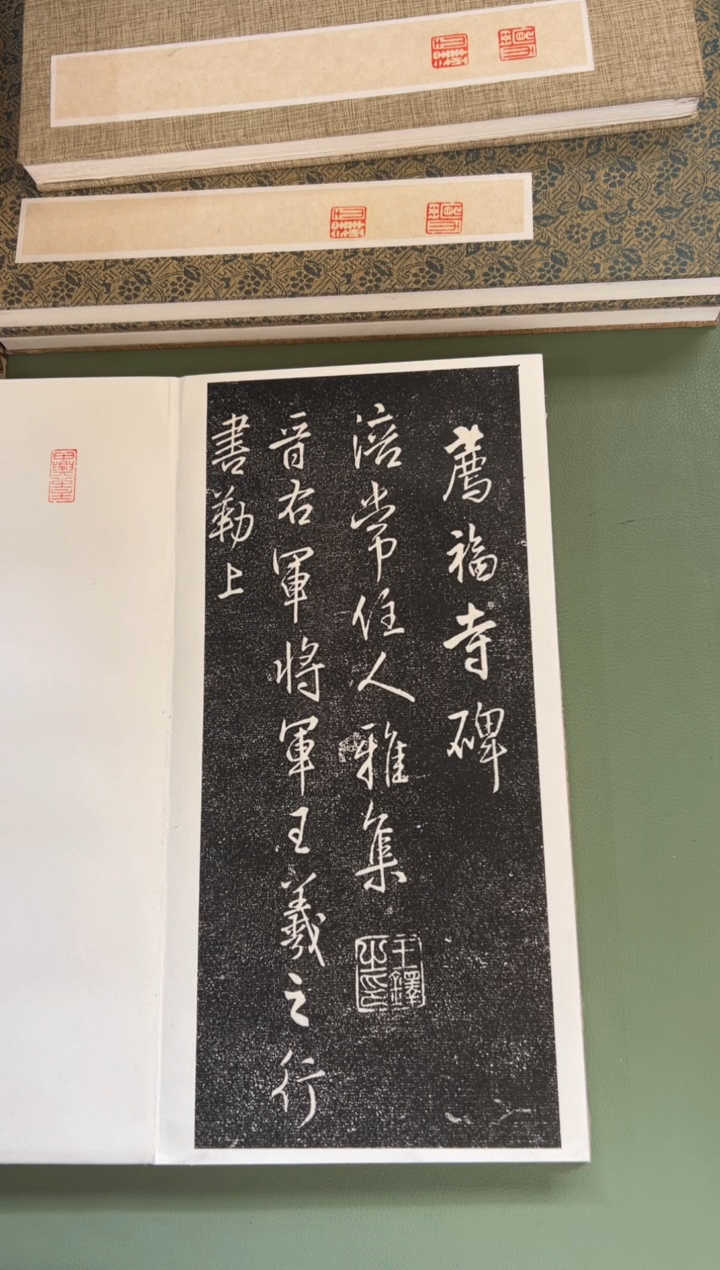 薦福寺碑
涪常住人雅集
晉右軍將軍王羲之行
書勒上
王鐸之印